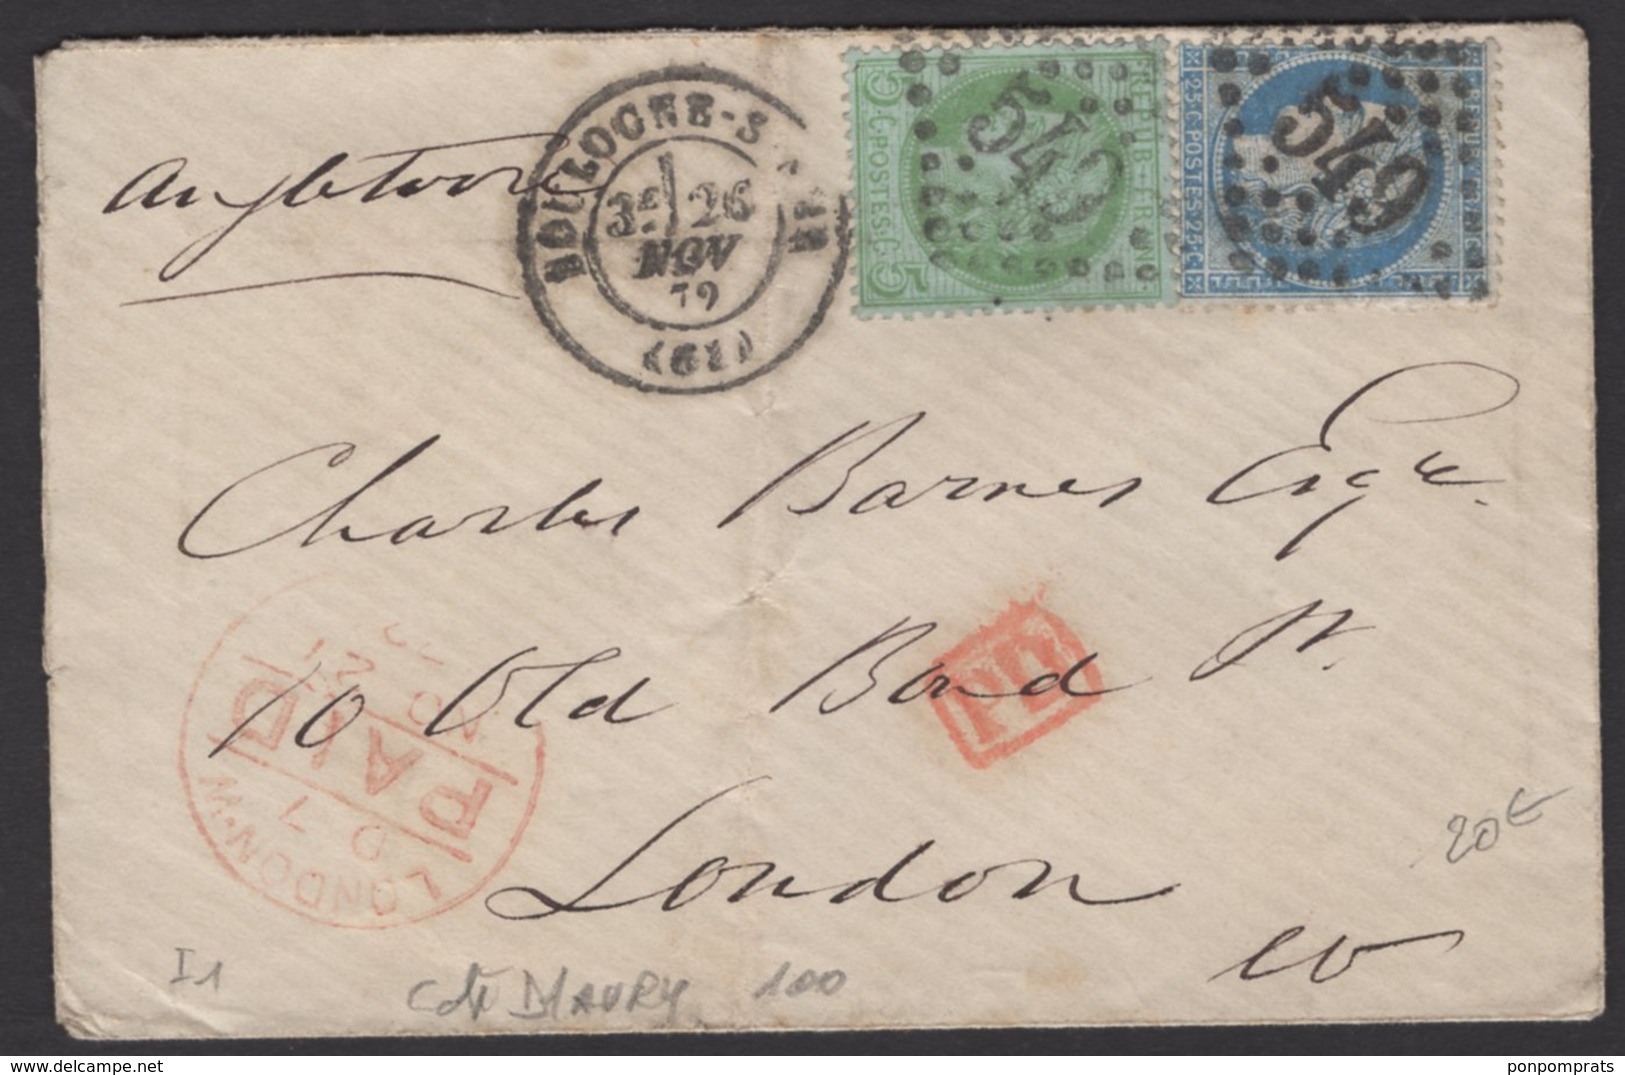 Angleterre
BOULOGNE-S-MER
3E 26
NOV
72
(61)
5 C. POSTES. 5 C
REPUB. FRANC
549
25 C. POSTES 25 C
REPUB. FRANC
549
Charles Barnes Esqre
10 Old Bond St.
London
W
PD
LONDON · W
D 7
PAID
NO
27
72
20 €
I1
Cote MAURY 100
ponpomprats